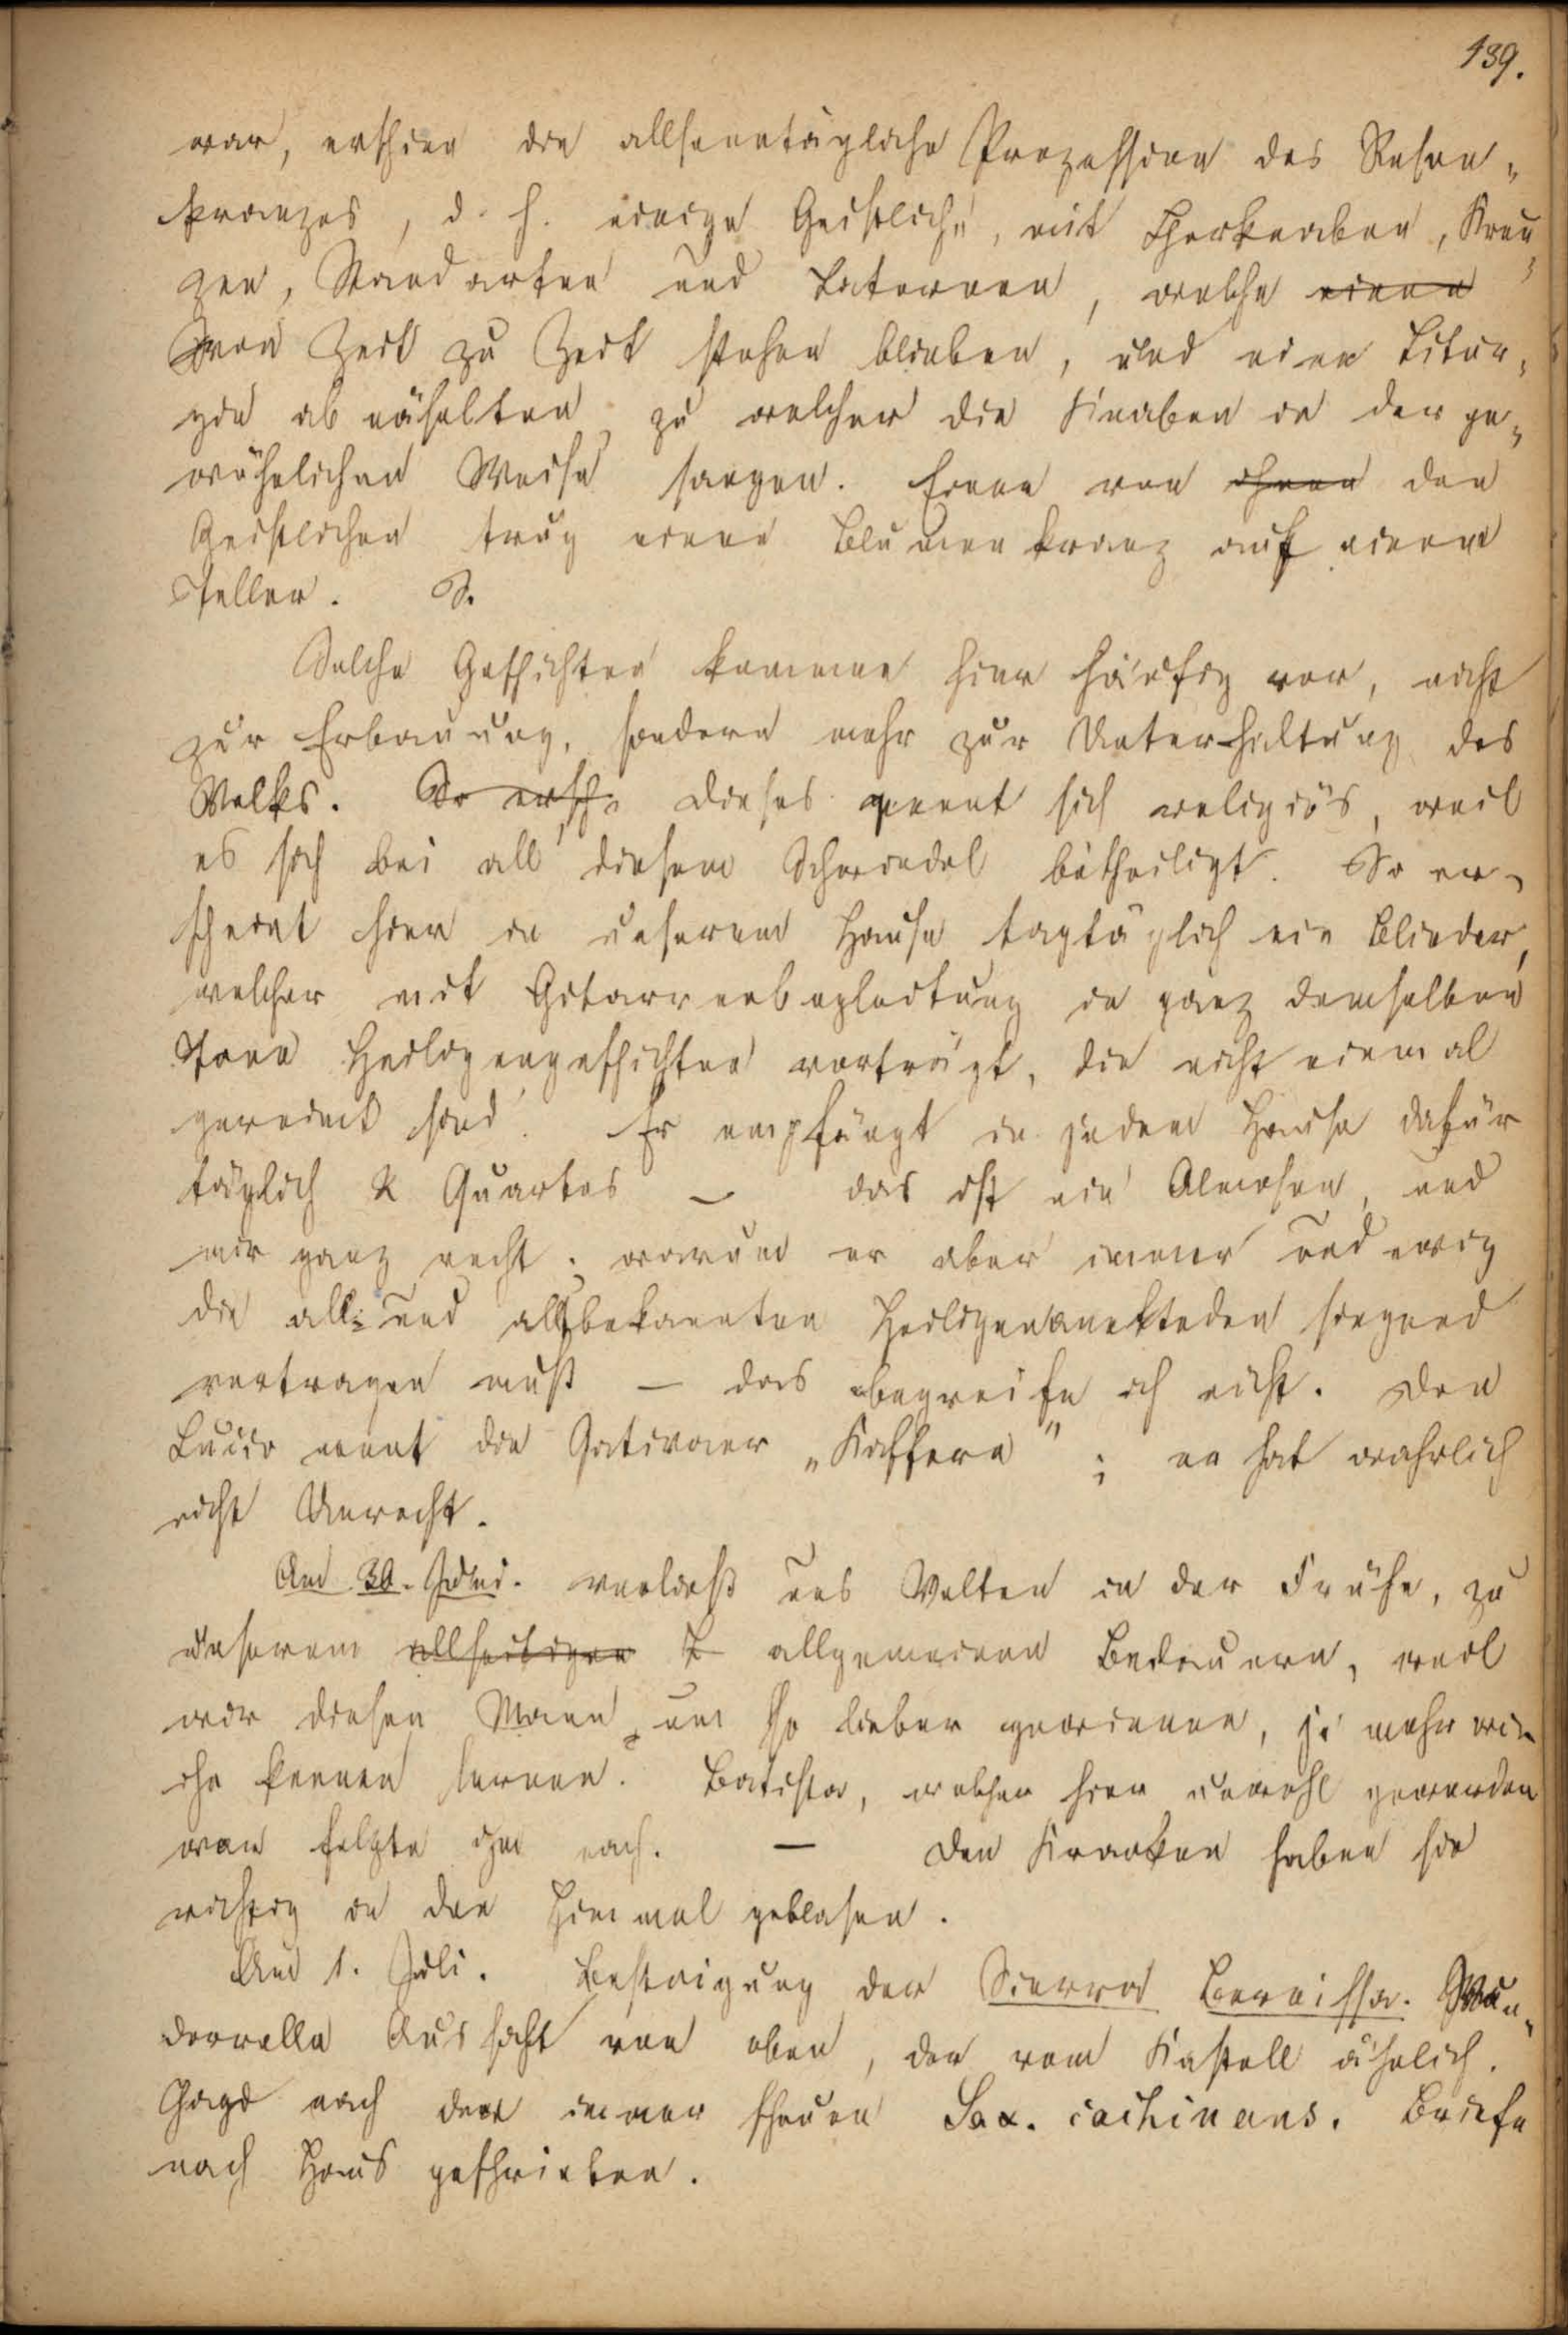 139.
war, erschien die allsonntägliche Prozession des Rosen-
kranzes, d. h. einige Geistliche, mit Chorknaben, Kreu-
zen, Standarten und Laternen, welche einen
von Zeit zu Zeit stehen blieben, und eine Litur-
gie ab näselten zu welcher die Knaben in der ge-
wöhnlichen Weise sangen. Einer von ihnen den
Geistlichen trug einen Blumenkranz auf einem
Teller. S.
Solche Geschichten kommen hier häufig vor, nicht
zur Erbauung, sondern mehr zur Unterhaltung des
Volks. So ersch. Dieses nennt sich religiös, weil
es sich bei all diesem Schwindel betheiligt. So er-
scheint hier in unserem Hause tagtäglich ein Blinder,
welcher mit Gitarrenbegleitung in ganz demselben
Tone Heiligengeschichten vorträgt, die nicht einmal
gereimt sind. Er empfängt in jedem Hause dafür
täglich 2 Quartos – das ist ein Almosen, und
mir ganz recht; warum er aber immer und ewig
die all- und allbekannten Heiligenanekteden singend
vortragen muß – das begreife ich nicht. Don
Lucio nennt die Jativaner „Kaffern"; er hat wahrlich
nicht Unrecht.
Am 30. Juni. verließ uns Walten in der Frühe, zu
unserem allseitigen allgemeinen Bedauern, weil
wir diesen Mann um so lieber gewinnen, je mehr wir
ihn kennen lernen. Batista, welcher hier unwohl geworden
war folgte ihm nach. – Den Kranken haben sie
richtig in den Himmel geblasen.
Am 1. Juli. Besteigung der Sierra Bernissa. Wun-
dervolle Aussicht von oben, der vom Kastell ähnlich.
Jagd nach der immer scheuen Sax. cachinans. Briefe
nach Haus geschrieben.